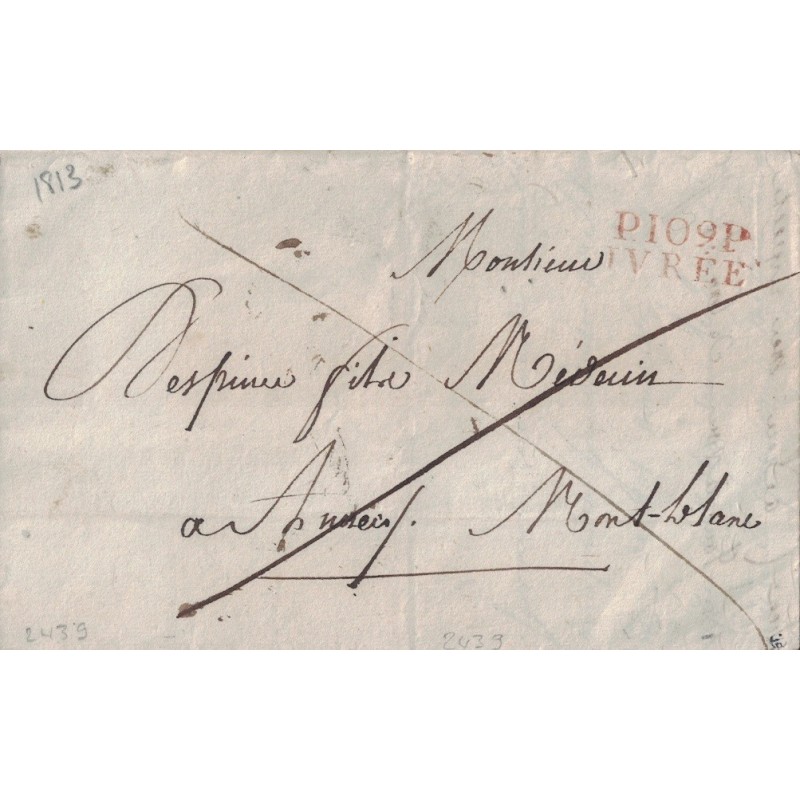 1813
P109P
IVRÉE
Monsieur
Despine fils Médecin
a Annecy. Mont-blanc
2439
2439